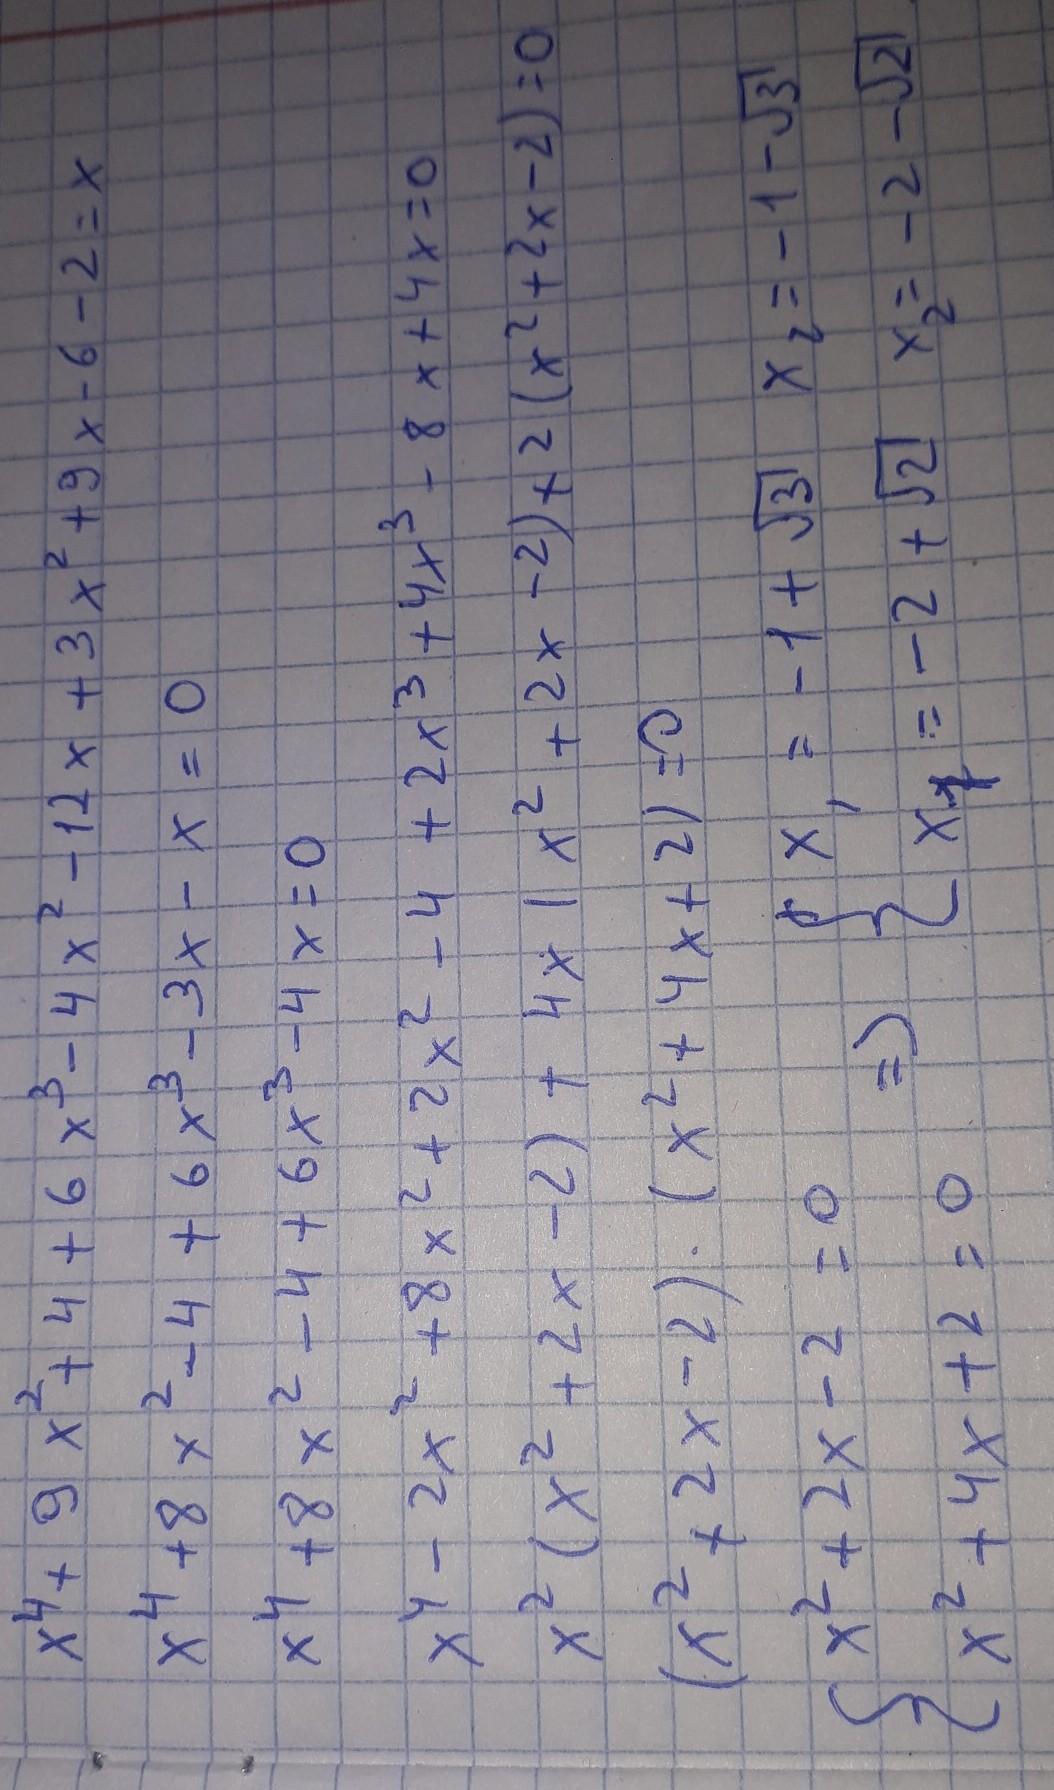 x⁴ + 9x² + 4 + 6x³ - 4x² - 12x + 3x² + 9x - 6 - 2 = x
x⁴ + 8x² - 4 + 6x³ - 3x - x = 0
x⁴ + 8x² - 4 + 6x³ - 4x = 0
x⁴ - 2x² + 8x² + 2x² - 4 + 2x³ + 4x³ - 8x + 4x = 0
x² (x² + 2x - 2) + 4x (x² + 2x - 2) + 2 (x² + 2x - 2) = 0
(x² + 2x - 2) · (x² + 4x + 2) = 0
{ x² + 2x - 2 = 0 => { x₁ = -1 + √3 x₂ = -1 - √3
x² + 4x + 2 = 0 x₁ = -2 + √2 x₂ = -2 - √2